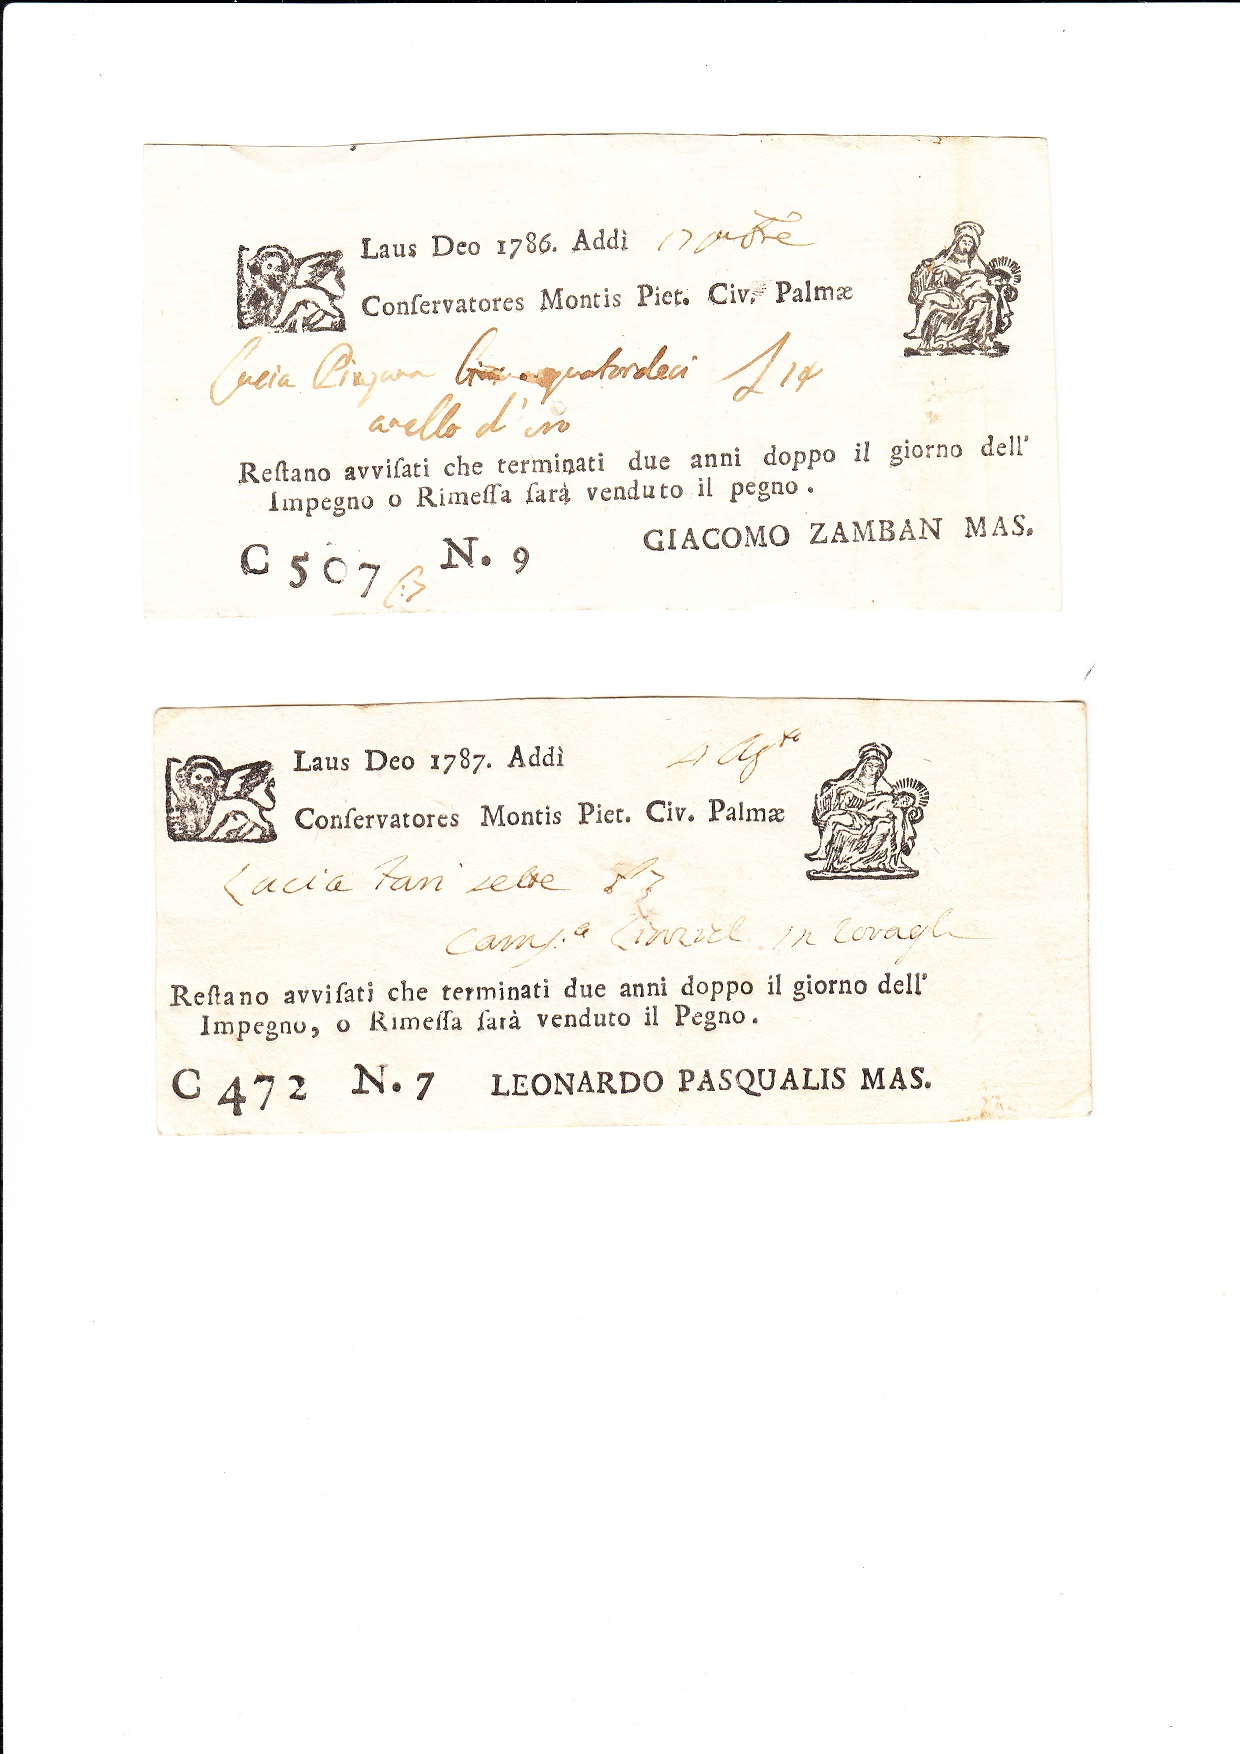 Laus Deo 1786. Addì 17
Conſervatores Montis Piet. Civ. Palmæ
Lucia quatordeci £ 14
anello d'oro
Reſtano avviſati che terminati due anni doppo il giorno dell'
Impegno o Rimeſſa ſarà venduto il pegno.
C 507 N. 9 GIACOMO ZAMBAN MAS.
Laus Deo 1787. Addì 4 Agto
Conſervatores Montis Piet. Civ. Palmæ
Lucia
in
Reſtano avviſati che terminati due anni doppo il giorno dell'
Impegno, o Rimeſſa ſarà venduto il Pegno.
C 472 N. 7 LEONARDO PASQUALIS MAS.